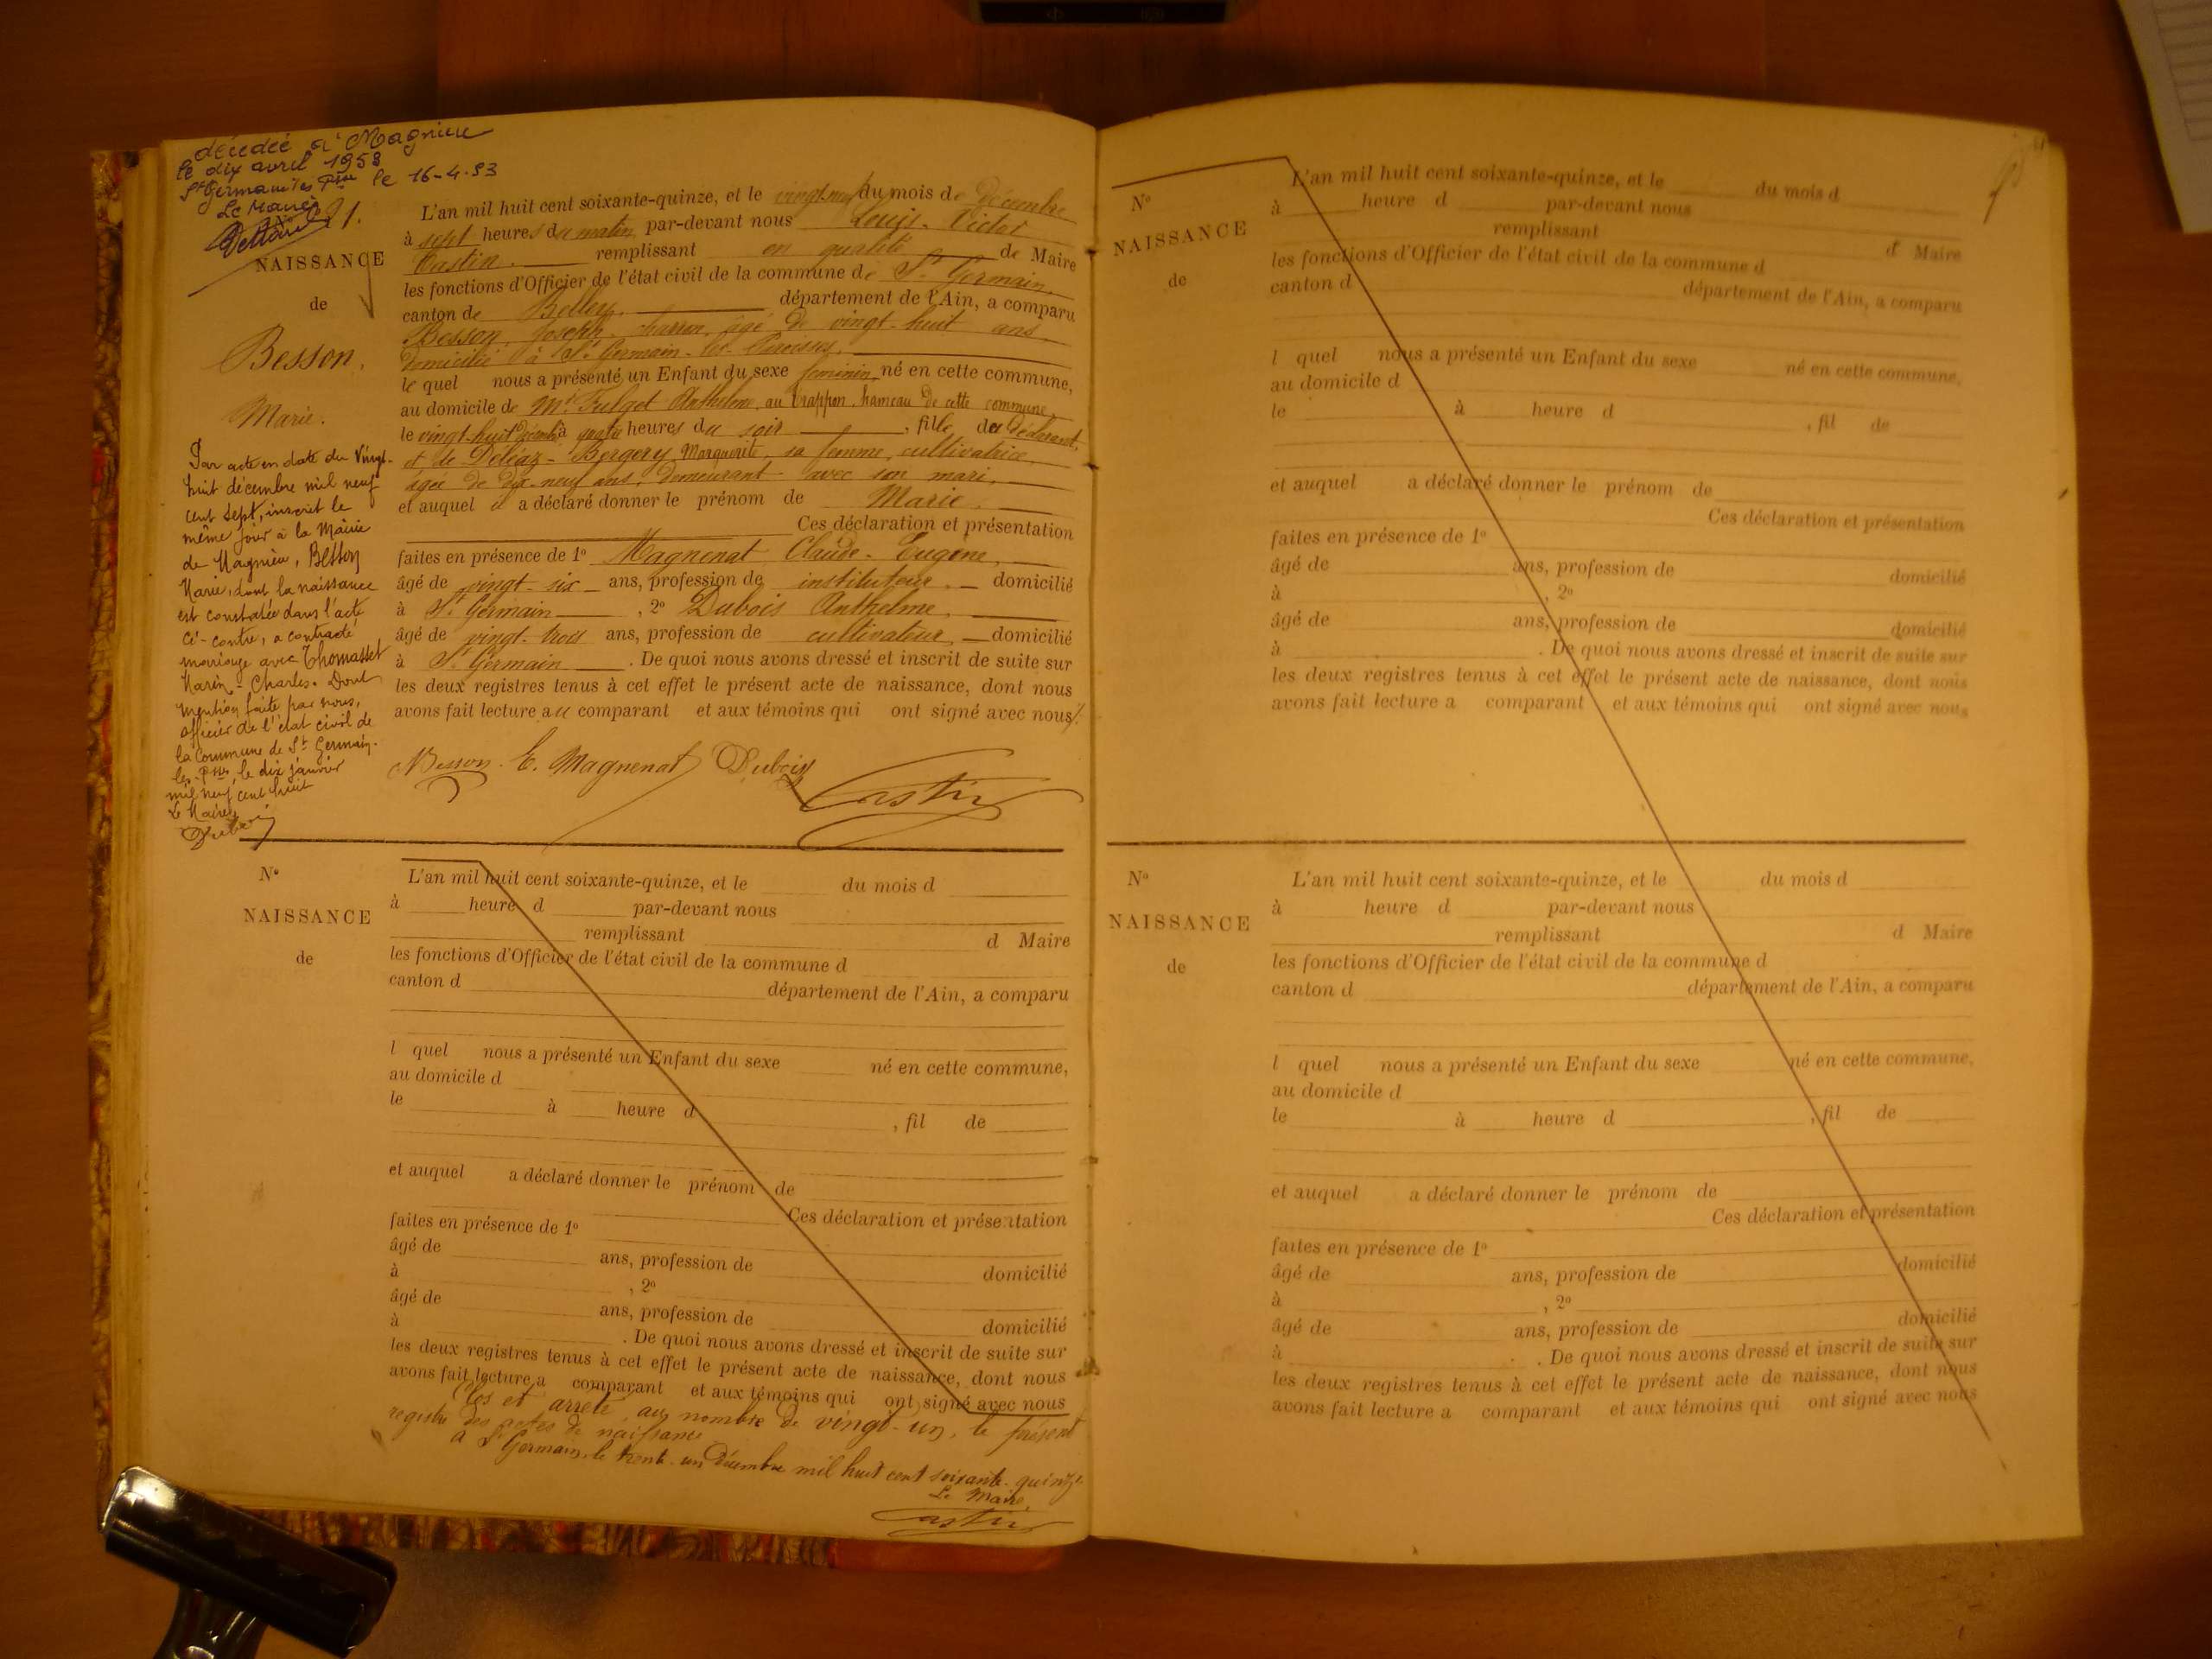 décédée à Magnieu
le dix avril 1953
St Germain les Pses le 16-4.53
Le Maire
N° 21.
NAISSANCE
de
Besson,
Marie.
Par acte en date du Vingt-
huit décembre mil neuf
cent sept, inscrit le
même jour à la Mairie
de Magnieu, Besson
Marie, dont la naissance
est constatée dans l'acte
ci-contre, a contracté
mariage avec Thomasset
Marin-Charles. Dont
mention faite par nous,
officier de l'état civil de
la Commune de St Germain-
les-Pses, le dix janvier
mil neuf cent huit
Le Maire,
Dubois
L'an mil huit cent soixante-quinze, et le vingt-neuf du mois de Décembre
à sept heures du matin par-devant nous Louis-Victor
Castin, remplissant en qualité de Maire
les fonctions d'Officier de l'état civil de la commune de St Germain,
canton de Belley, département de l'Ain, a comparu
Besson Joseph, charron, âgé de vingt-huit ans,
domicilié à St Germain-les-Paroisses,
le quel nous a présenté un Enfant du sexe féminin, né en cette commune,
au domicile de Mr Fulget Anthelme, au Crappon, hameau de cette commune,
le vingt-huit décembre à quatre heures du soir, fille du déclarant,
et de Deléaz-Bergery Marguerite, sa femme, cultivatrice,
âgée de dix-neuf ans, demeurant avec son mari,
et auquel il a déclaré donner le prénom de Marie.
Ces déclaration et présentation
faites en présence de 1° Magnenat Claude-Eugène,
âgé de vingt-six ans, profession de instituteur, domicilié
à St Germain, 2° Dubois Anthelme,
âgé de vingt-trois ans, profession de cultivateur, domicilié
à St Germain. De quoi nous avons dressé et inscrit de suite sur
les deux registres tenus à cet effet le présent acte de naissance, dont nous
avons fait lecture au comparant et aux témoins qui ont signé avec nous.
Besson. E. Magnenat Dubois
Castin
N°
NAISSANCE
de
L'an mil huit cent soixante-quinze, et le du mois d
à heure d par-devant nous
remplissant d Maire
les fonctions d'Officier de l'état civil de la commune d
canton d département de l'Ain, a comparu
l quel nous a présenté un Enfant du sexe né en cette commune,
au domicile d
le à heure d , fil de
et auquel a déclaré donner le prénom de
Ces déclaration et présentation
faites en présence de 1°
âgé de ans, profession de domicilié
à , 2°
âgé de ans, profession de domicilié
à . De quoi nous avons dressé et inscrit de suite sur
les deux registres tenus à cet effet le présent acte de naissance, dont nous
avons fait lecture a comparant et aux témoins qui ont signé avec nous
Clos et arrêté, au nombre de vingt-un, le présent
registre des actes de naissance
à St Germain, le trente-un Décembre mil huit cent soixante-quinze.
Le Maire,
Castin
N°
NAISSANCE
de
L'an mil huit cent soixante-quinze, et le du mois d
à heure d par-devant nous
remplissant d Maire
les fonctions d'Officier de l'état civil de la commune d
canton d département de l'Ain, a comparu
l quel nous a présenté un Enfant du sexe né en cette commune,
au domicile d
le à heure d , fil de
et auquel a déclaré donner le prénom de
Ces déclaration et présentation
faites en présence de 1°
âgé de ans, profession de domicilié
à , 2°
âgé de ans, profession de domicilié
à . De quoi nous avons dressé et inscrit de suite sur
les deux registres tenus à cet effet le présent acte de naissance, dont nous
avons fait lecture a comparant et aux témoins qui ont signé avec nous
N°
NAISSANCE
de
L'an mil huit cent soixante-quinze, et le du mois d
à heure d par-devant nous
remplissant d Maire
les fonctions d'Officier de l'état civil de la commune d
canton d département de l'Ain, a comparu
l quel nous a présenté un Enfant du sexe né en cette commune,
au domicile d
le à heure d , fil de
et auquel a déclaré donner le prénom de
Ces déclaration et présentation
faites en présence de 1°
âgé de ans, profession de domicilié
à , 2°
âgé de ans, profession de domicilié
à . De quoi nous avons dressé et inscrit de suite sur
les deux registres tenus à cet effet le présent acte de naissance, dont nous
avons fait lecture a comparant et aux témoins qui ont signé avec nous